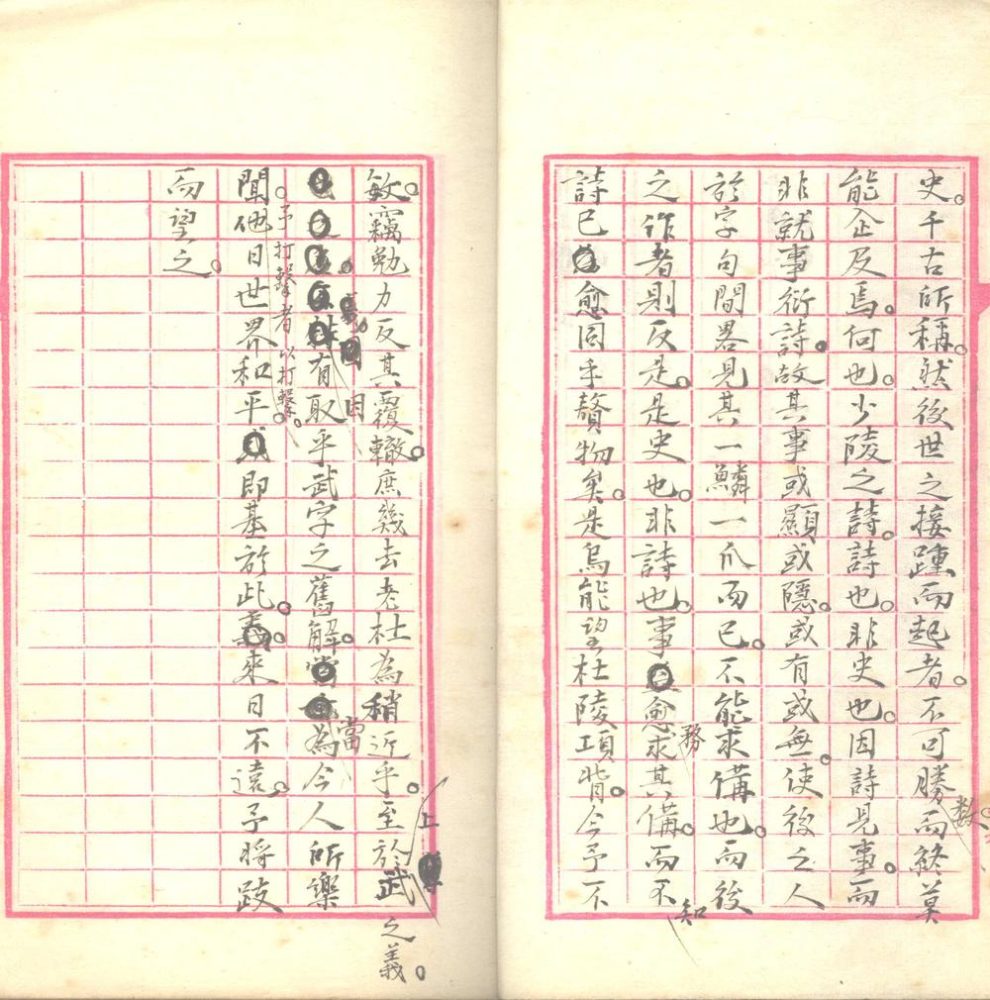 史。千古所稱。然後世之接踵而起者。不可勝數。而終莫
能企及焉。何也。少陵之詩。詩也。非史也。因詩見事。而
非就事衍詩。故其事或顯或隱。或有或無。使後之人
於字句間畧見其一鱗一爪而已。不能求備也。而後
之作者則反是。是史也。非詩也。事愈務求其備。而不知
詩已愈同乎贅物矣。是烏能望杜陵項背。今予不
敏。竊勉力反其覆轍。庶幾去老杜為稍近乎。至於上武之義。
因有取乎武字之舊解。當為今人所樂
聞。予打擊者以打擊。他日世界和平。即基於此。來日不遠。予將跂
而望之。